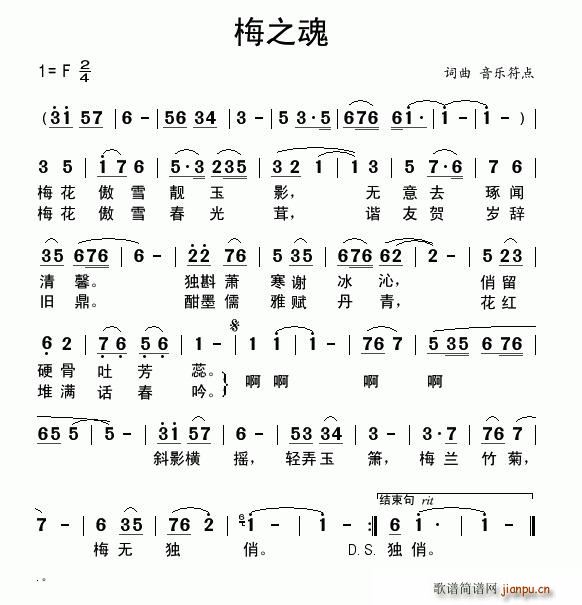 梅之魂
1=F 2/4 词曲 音乐符点
( 3 1 5 7 | 6 - | 5 6 3 4 | 3 - | 5 3 · 5 | 6 7 6 6 1 · | 1 - | 1 - )
3 5 | 1 7 6 | 5 · 3 2 3 5 | 3 2 1 | 1 3 | 5 7 · 6 | 7 6
梅花 傲雪 靓玉 影， 无 意去 琢闻
梅花 傲雪 春光 茸， 谐 友贺 岁辞
3 5 6 7 6 | 6 - | 2 2 7 6 | 5 3 5 | 6 7 6 6 2 | 2 - | 5 3 5
清馨。 独斟萧 寒谢 冰沁， 俏留
旧鼎。 酣墨儒 雅赋 丹青， 花红
6 2 | 7 6 5 6 | 1 - | 1 - | 1 1 | 1 - | 7 7 | 5 3 5 6 7 6
硬骨 吐芳 蕊。
堆满 话春 吟。 } 啊 啊 啊 啊
6 5 5 | 5 - | 3 1 5 7 | 6 - | 5 3 3 4 | 3 - | 3 · 7 | 6 7 5
斜影横 摇， 轻弄玉 箫， 梅兰 竹菊，
结束句 rit
7 - | 6 3 5 | 7 6 2 | 6 1 - | 1 - :‖ 6 1 · | 1 - | 1 - ‖
梅无 独 俏。 D.S. 独俏。
. 。
歌谱简谱网 jianpu.cn